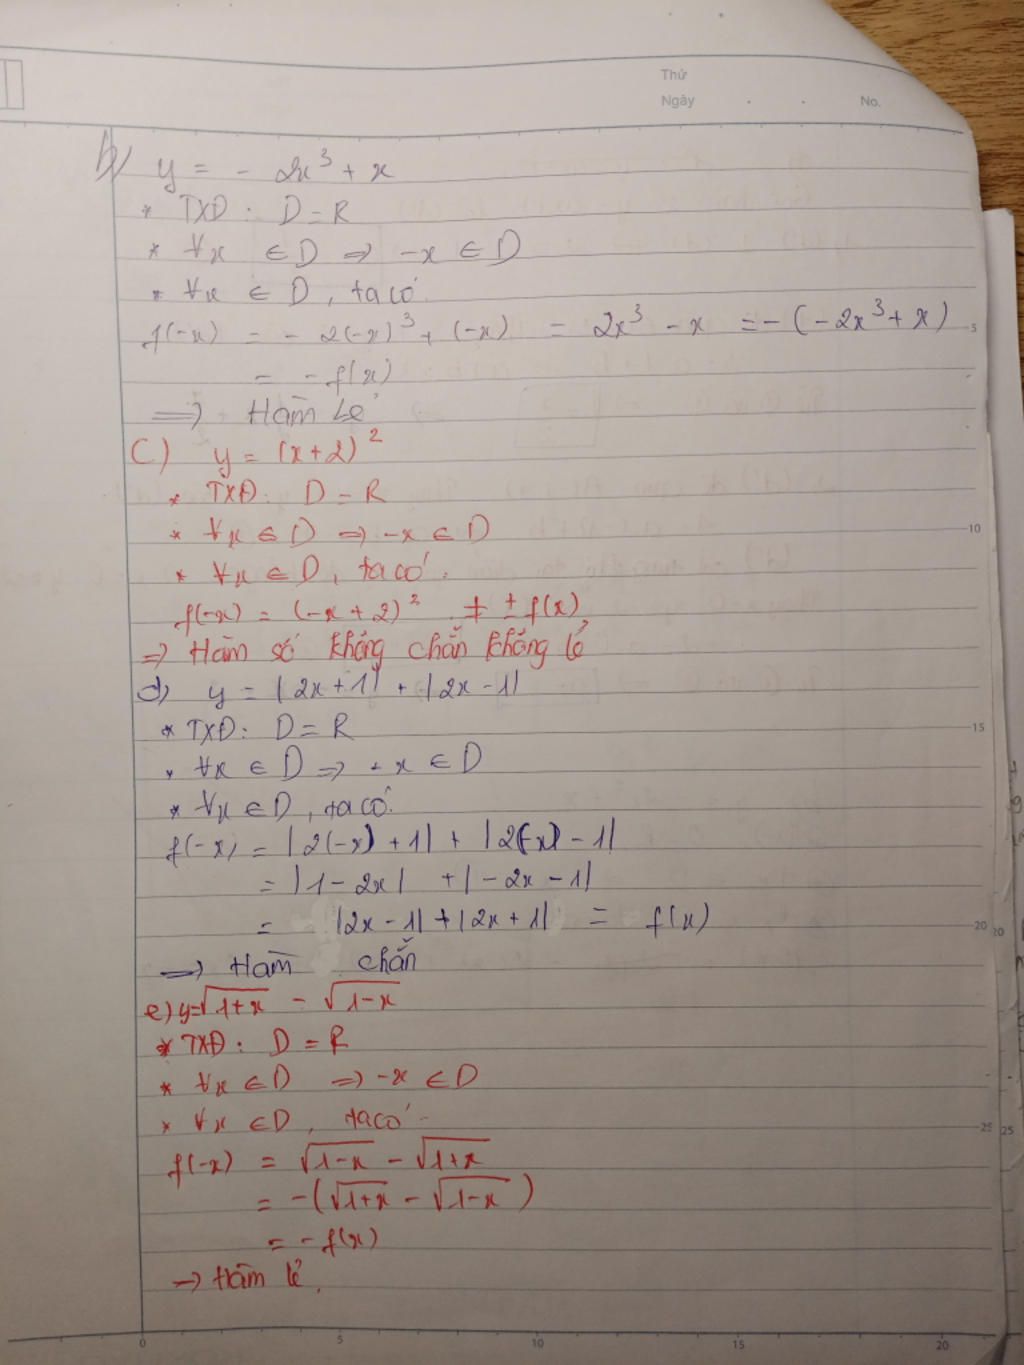 Thứ
Ngày . . No.
b) y = - 2x³ + x
* TXD : D = R
* ∀x ∈ D ⇒ -x ∈ D
* ∀x ∈ D, ta có
f(-x) = - 2(-x)³ + (-x) = 2x³ - x = -(-2x³ + x)
5
= - f(x)
⇒ Hàm Lẻ
C) y = (x+2)²
* TXĐ: D = R
* ∀x ∈ D ⇒ -x ∈ D
10
* ∀x ∈ D, ta có.
f(-x) = (-x + 2)² ≠ ± f(x)
⇒ Hàm số không chẵn không lẻ
d) y = |2x + 1| + |2x - 1|
* TXĐ: D = R
15
* ∀x ∈ D ⇒ -x ∈ D
* ∀x ∈ D, ta có:
f(-x) = |2(-x) + 1| + |2(-x) - 1|
= |1 - 2x| + |-2x - 1|
= |2x - 1| + |2x + 1| = f(x)
20 20
⇒ Hàm chẵn
e) y = √1+x - √1-x
* TXĐ: D = R
* ∀x ∈ D ⇒ -x ∈ D
* ∀x ∈ D, ta có
25 25
f(-x) = √1-x - √1+x
= -(√1+x - √1-x)
= - f(x)
→ Hàm lẻ.
0 5 10 15 20